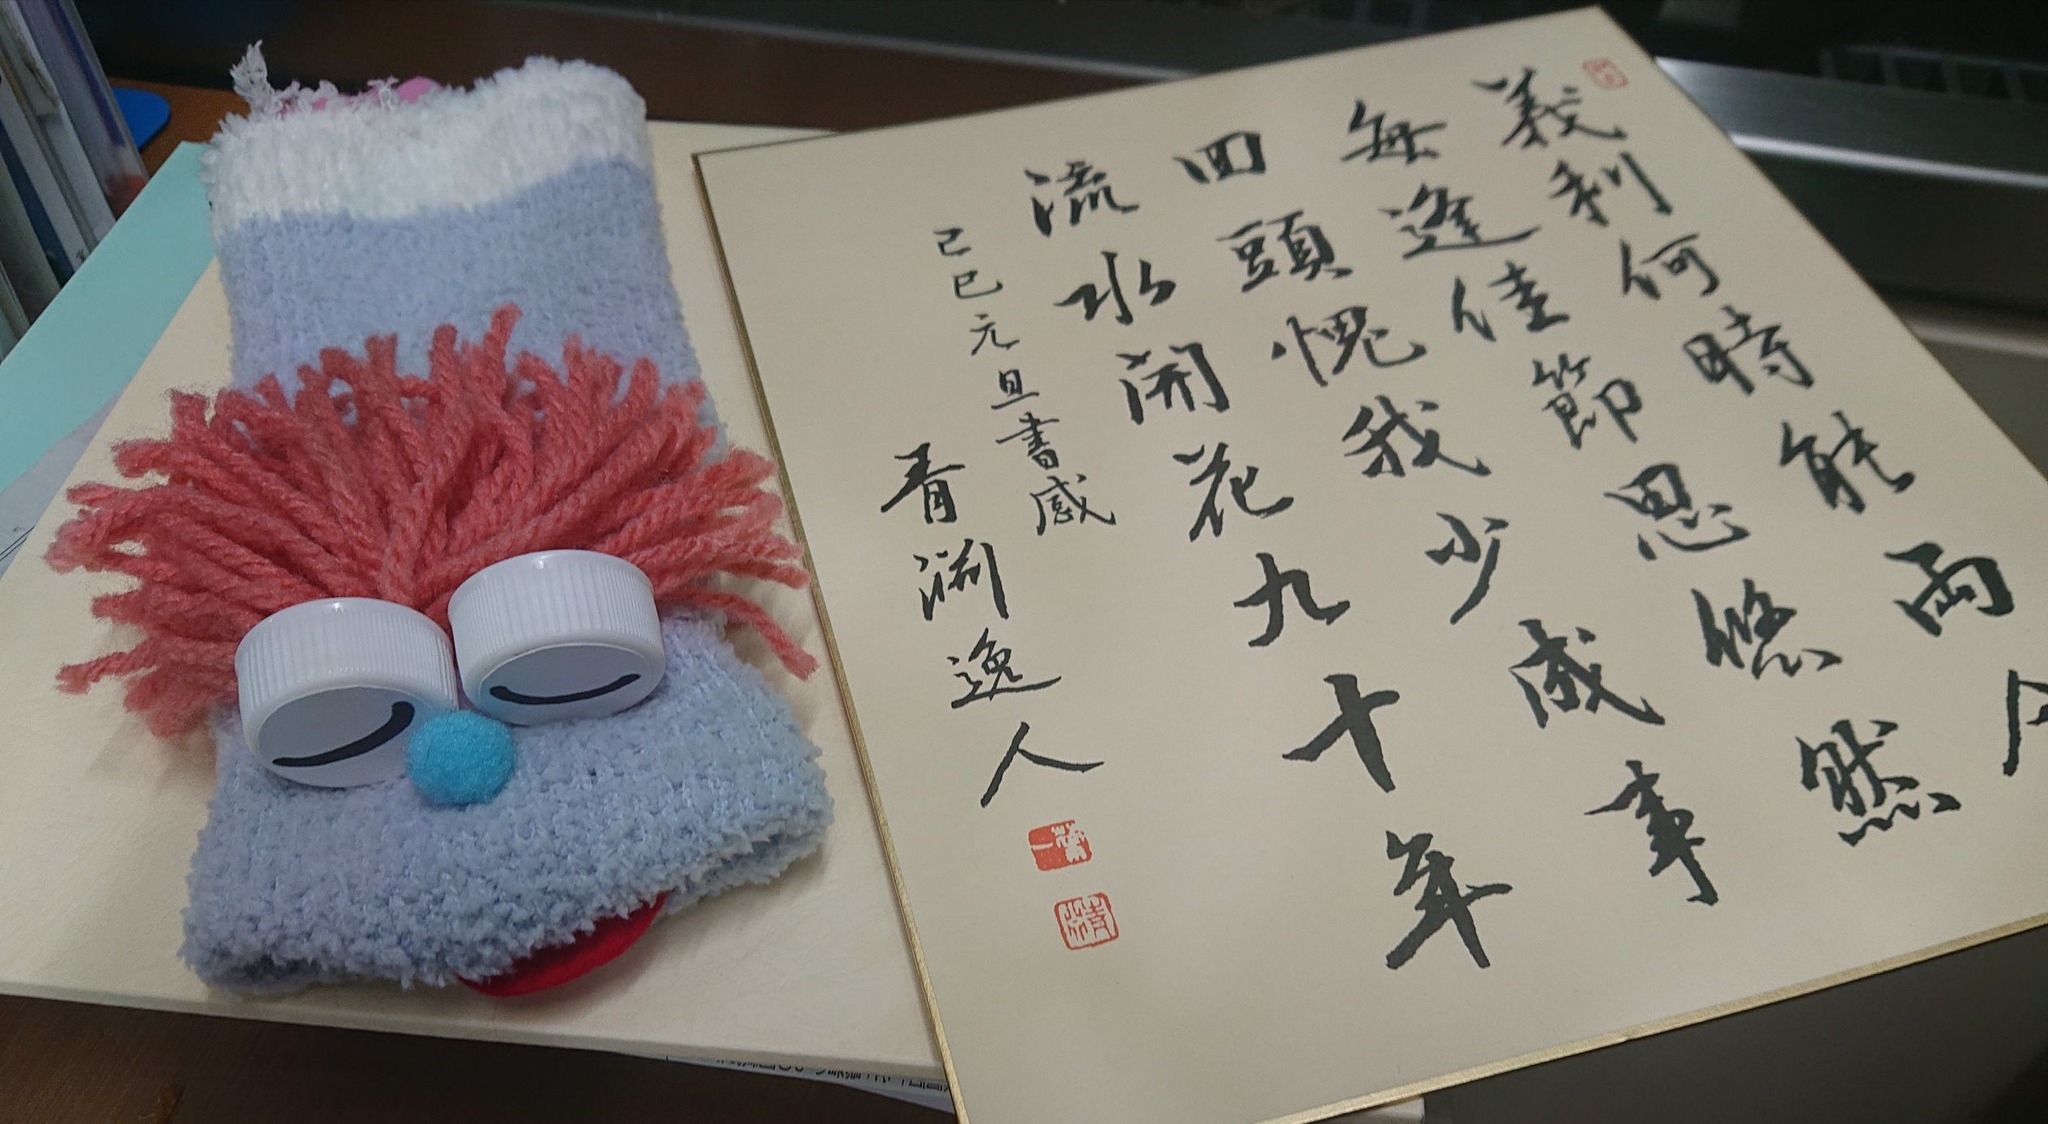 義利何時能両
毎逢佳節思悠然
回頭愧我少成事
流水開花九十年
己巳元旦書感
青淵逸人